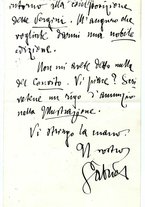 intorno alla composizione
delle Vergini. M'auguro che
vogliate darmi una nobile
edizione.
Non mi avete detto nulla
del Convito. Vi piace? Scri
vetene un rigo d'annunzio
nella Illustrazione.
Vi stringo la mano
Il vostro
Gabriele